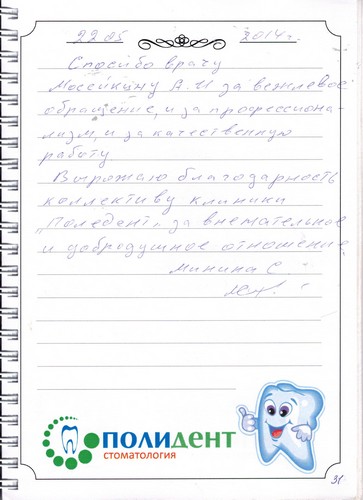 22 05 2014 г.
Спасибо врачу
Мосейкину А.И за вежлевое
обращение, и за профессиона-
лизм, и за качественную
работу
Выражаю благодарность
коллективу клиники
"Поледент" за внемательное
и добродушное отношение
Минина С.
ПОЛИДЕНТ
СТОМАТОЛОГИЯ
31